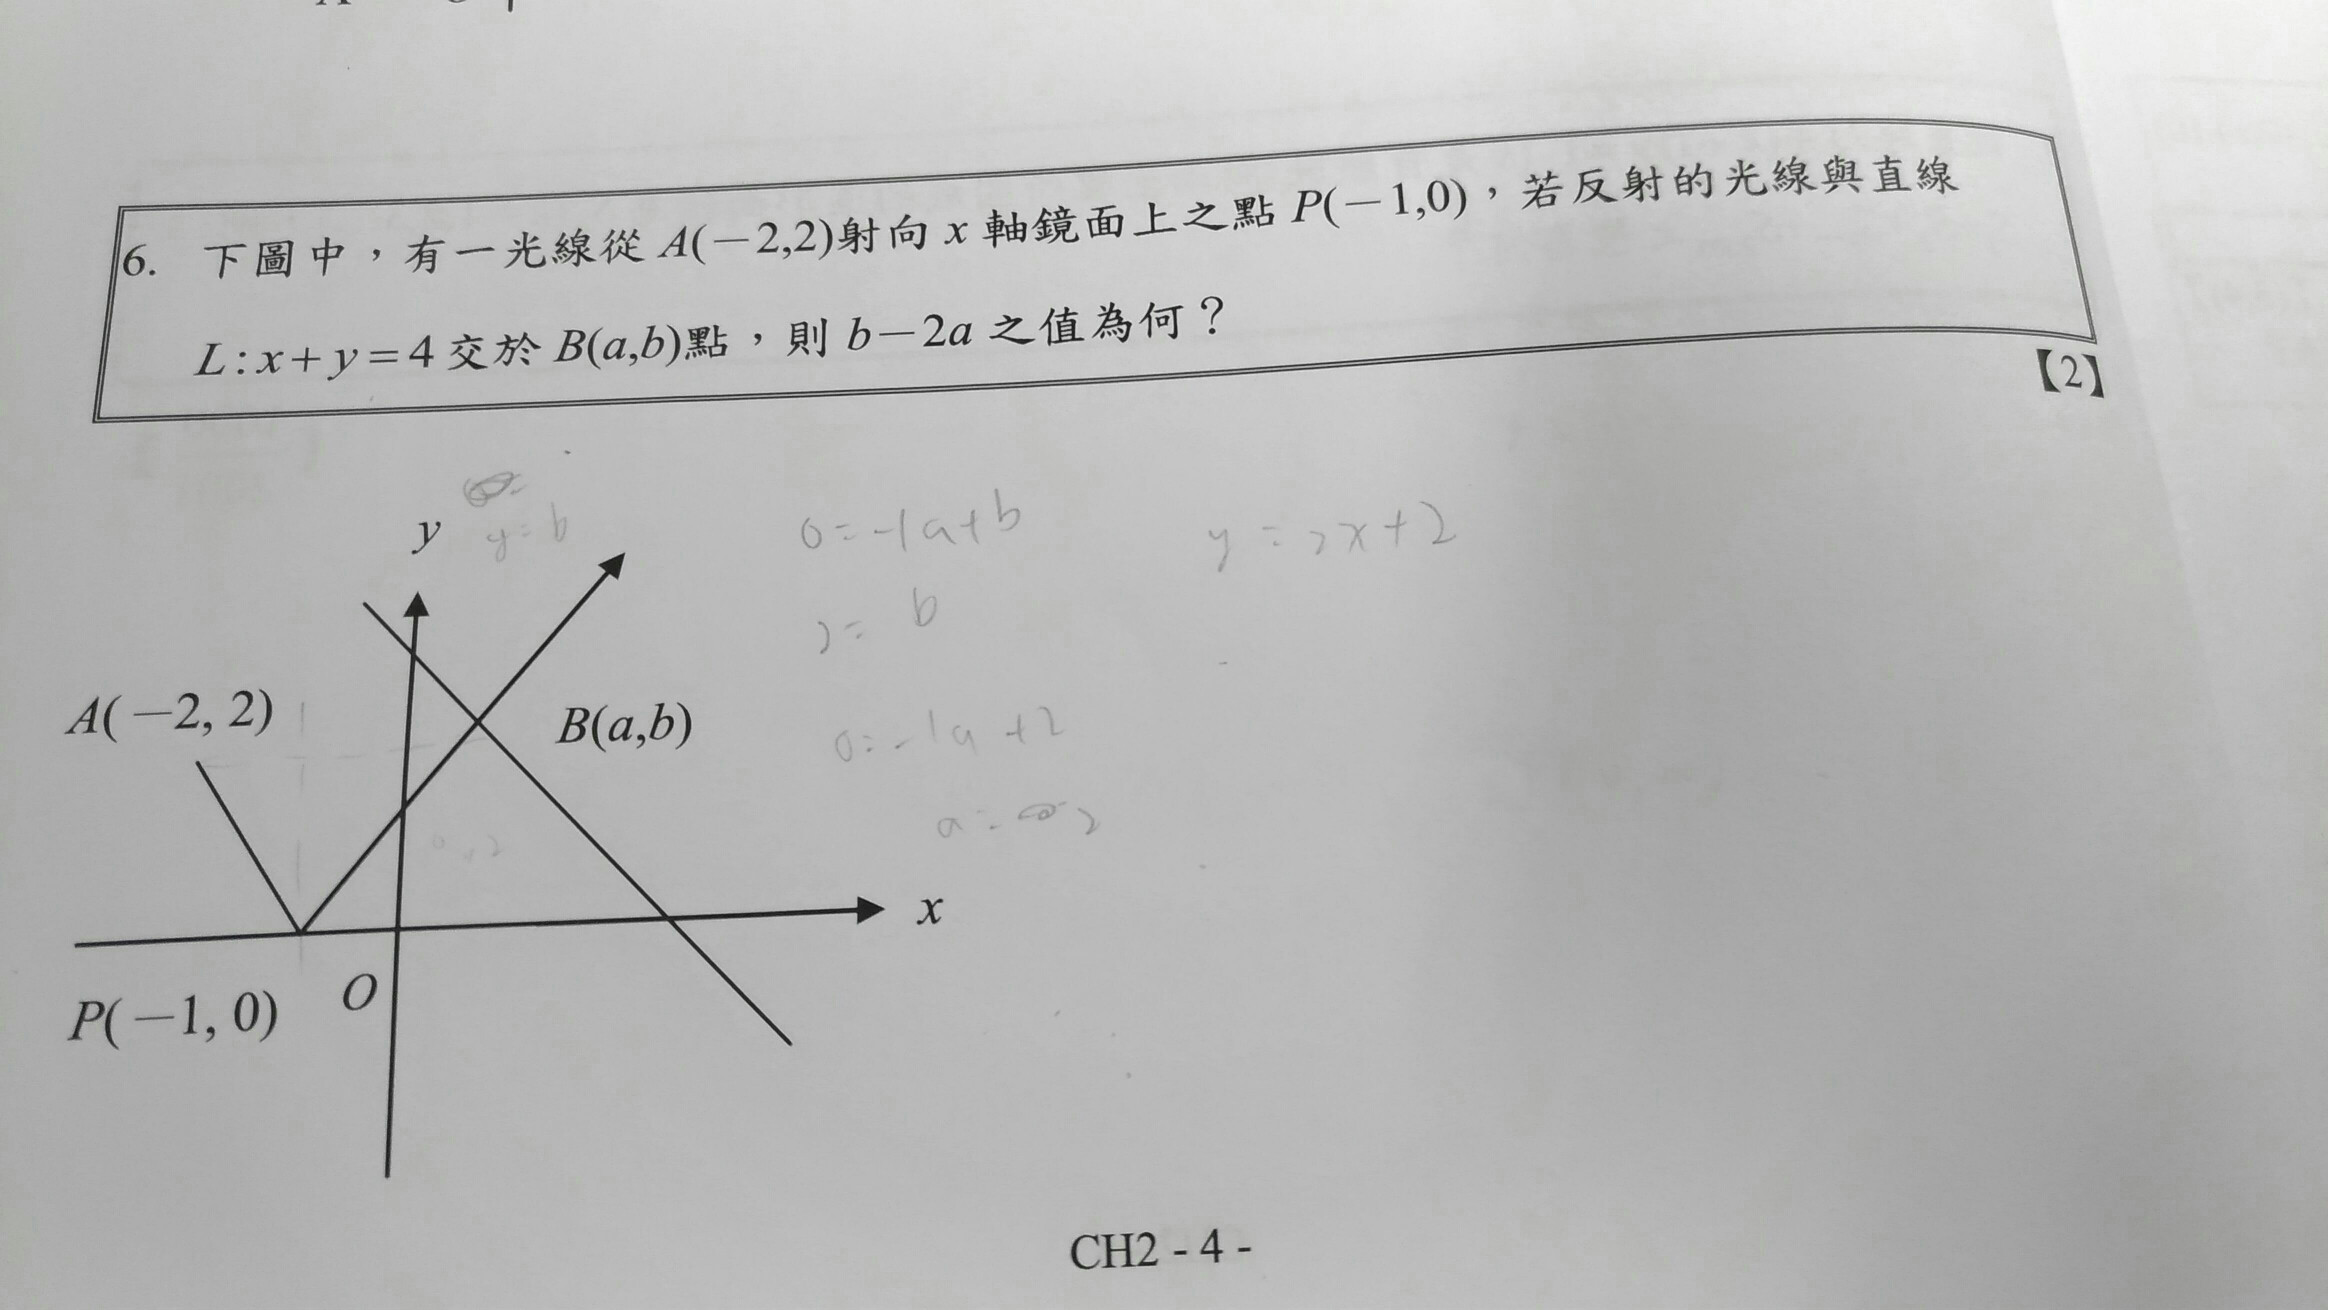 6. 下圖中，有一光線從 A(－2,2)射向 x 軸鏡面上之點 P(－1,0)，若反射的光線與直線
L:x+y=4 交於 B(a,b)點，則 b－2a 之值為何？
【2】
y
y=b
0=-1a+b
y=2x+2
2= b
A(－2, 2)
B(a,b)
0=-1a+2
a= 2
0,2
x
O
P(－1, 0)
CH2 - 4 -